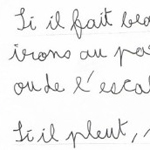 Si il fait bea
irons au pa
ou de l'escal
Si il pleut,